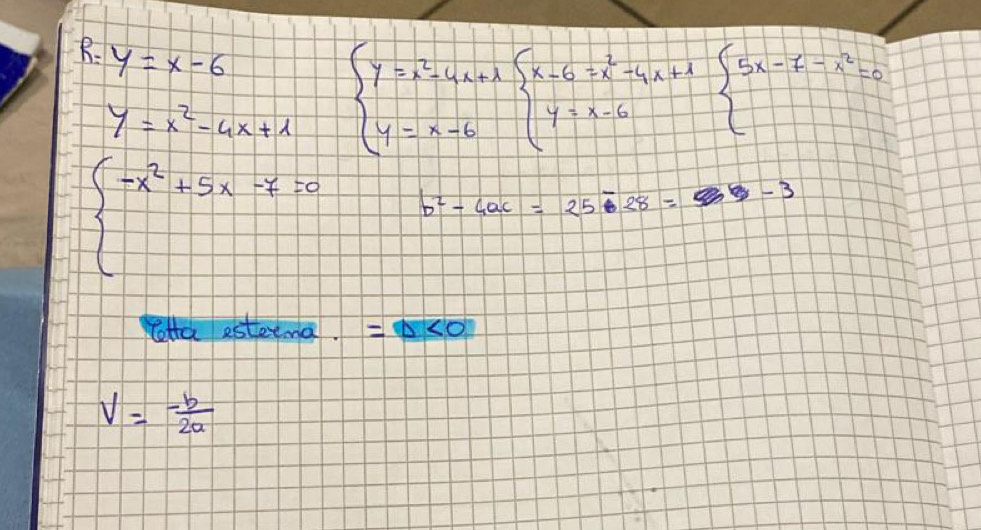 R: y = x - 6
{ y = x² - 4x + 1 { x - 6 = x² - 4x + 1 { 5x - 7 - x² = 0
y = x² - 4x + 1
y = x - 6 y = x - 6
{ -x² + 5x - 7 = 0
b² - 4ac = 25 - 28 = - 3
retta esterna. = Δ < 0
V = -b/2a